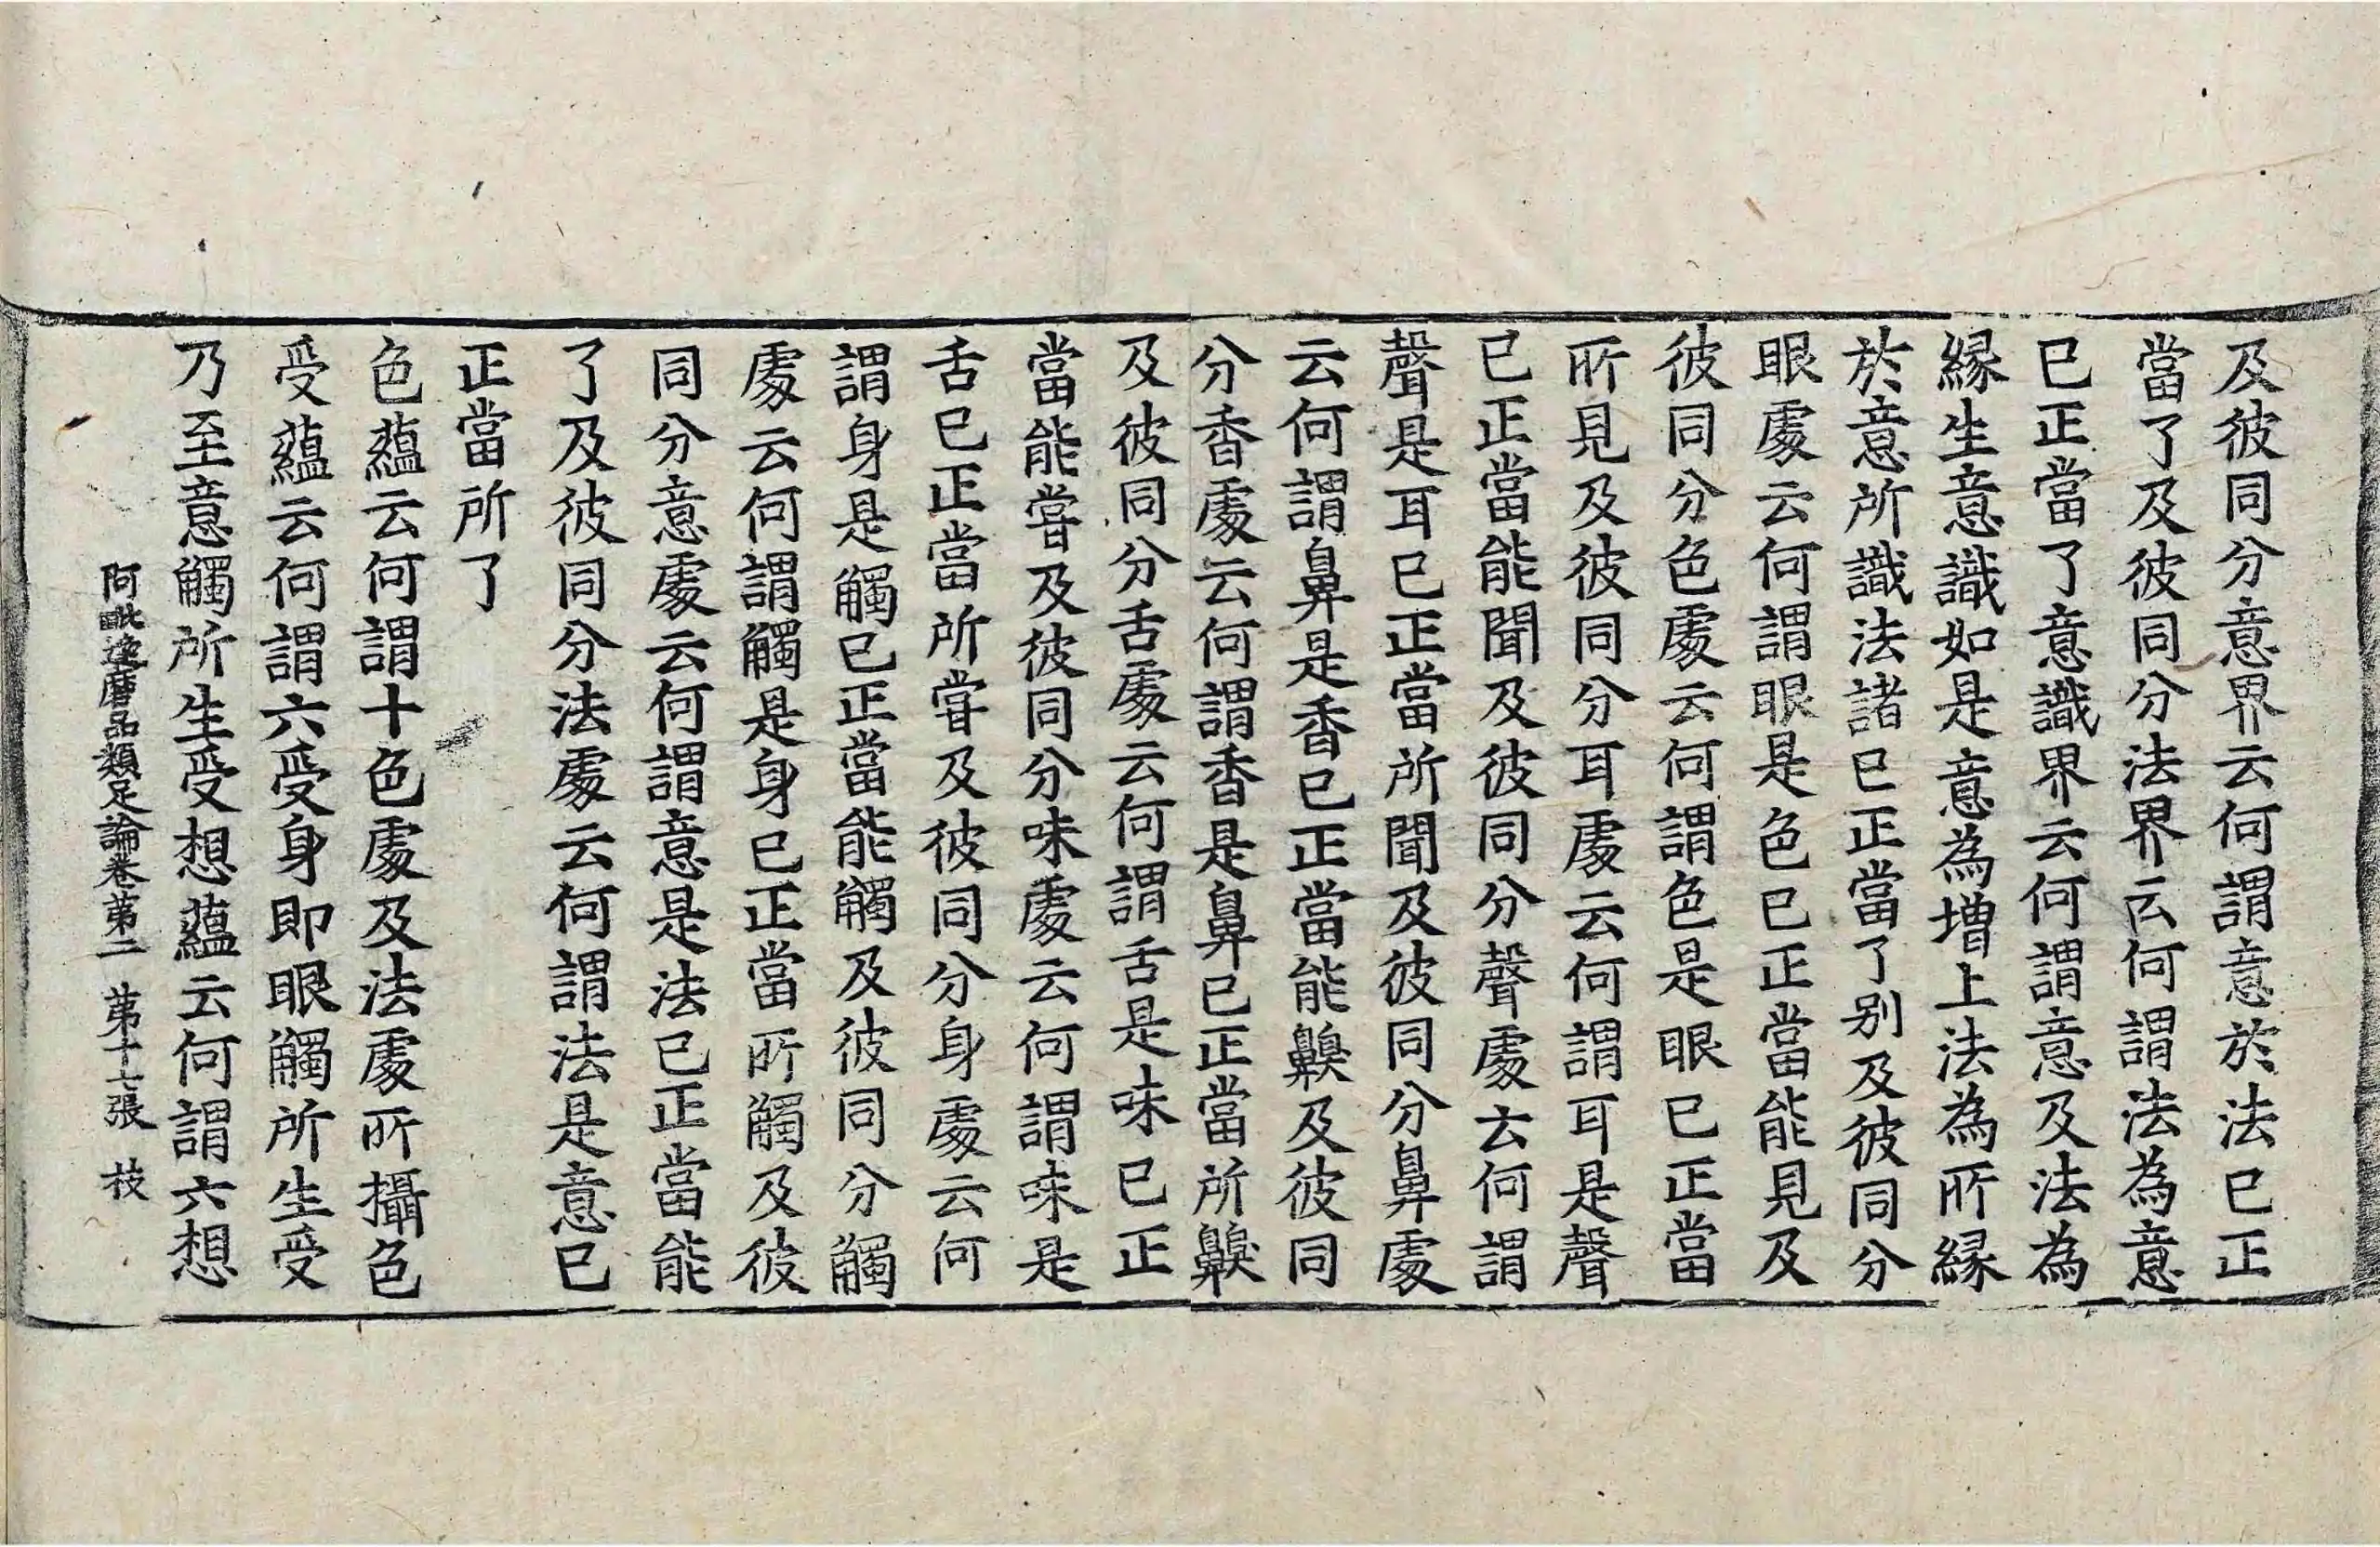 及彼同分意界云何謂意於法已正
當了及彼同分法界云何謂法為意
已正當了意識界云何謂意及法為
縁生意識如是意為增上法為所縁
於意所識法諸已正當了别及彼同分
眼處云何謂眼是色已正當能見及
彼同分色處云何謂色是眼已正當
所見及彼同分耳處云何謂耳是聲
已正當能聞及彼同分聲處云何謂
聲是耳已正當所聞及彼同分鼻處
云何謂鼻是香已正當能齅及彼同
分香處云何謂香是鼻已正當所齅
及彼同分舌處云何謂舌是味已正
當能甞及彼同分味處云何謂味是
舌已正當所甞及彼同分身處云何
謂身是觸已正當能觸及彼同分觸
處云何謂觸是身已正當所觸及彼
同分意處云何謂意是法已正當能
了及彼同分法處云何謂法是意已
正當所了
色蘊云何謂十色處及法處所攝色
受蘊云何謂六受身即眼觸所生受
乃至意觸所生受想蘊云何謂六想
阿毗達磨品類足論卷第二 第十七張 技